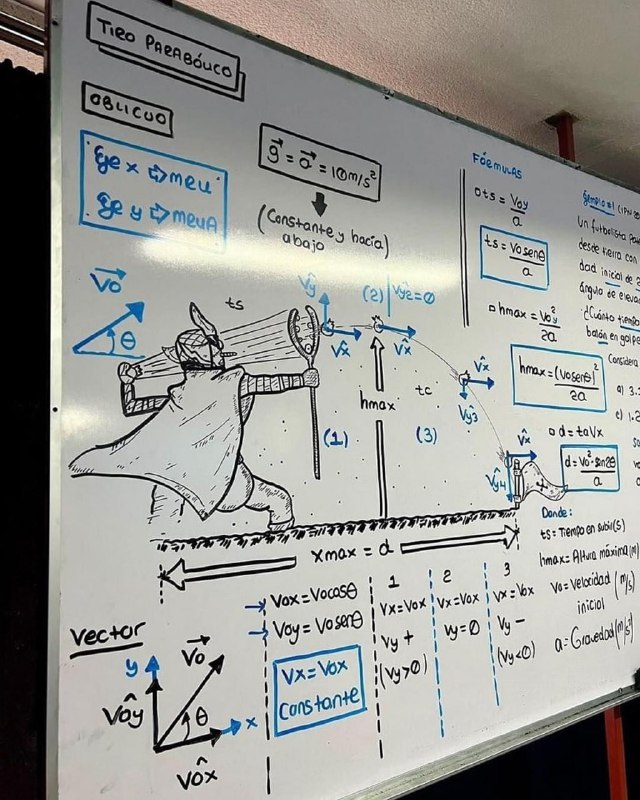 TIRO PARABÓLICO
OBLICUO
Eje x ⇨ MRU
Eje y ⇨ MRUA
g⃗ = a⃗ = 10m/s²
(Constante y hacía
abajo)
V⃗o
θ
ts
V̂y
V̂x
(2)
Vy2=0
V̂x
(1)
hmax
tc
(3)
V̂x
V̂y3
V̂x
V̂y4
xmax = d
FÓRMULAS
ts = Voy/a
ts = Vosenθ/a
hmax = Voy²/2a
hmax = (Vosenθ)²/2a
d = taVx
d = Vo²·sen2θ/a
Donde:
ts = Tiempo en subir(s)
hmax = Altura máxima(m)
Vo = Velocidad (m/s)
inicial
a = Gravedad (m/s²)
Ejemplo #1
Un futbolista
desde tierra con
dad inicial de
ángulo de eleva
¿Cuánto tiempo
balón en golpe
Considera
a) 3.
c) 1.2
Vector
y
V⃗o
V̂oy
θ
x
V̂ox
Vox = Vocosθ
Voy = Vosenθ
Vx = Vox
Constante
1
Vx = Vox
Vy +
(Vy>0)
2
Vx = Vox
Vy = 0
3
Vx = Vox
Vy −
(Vy<0)